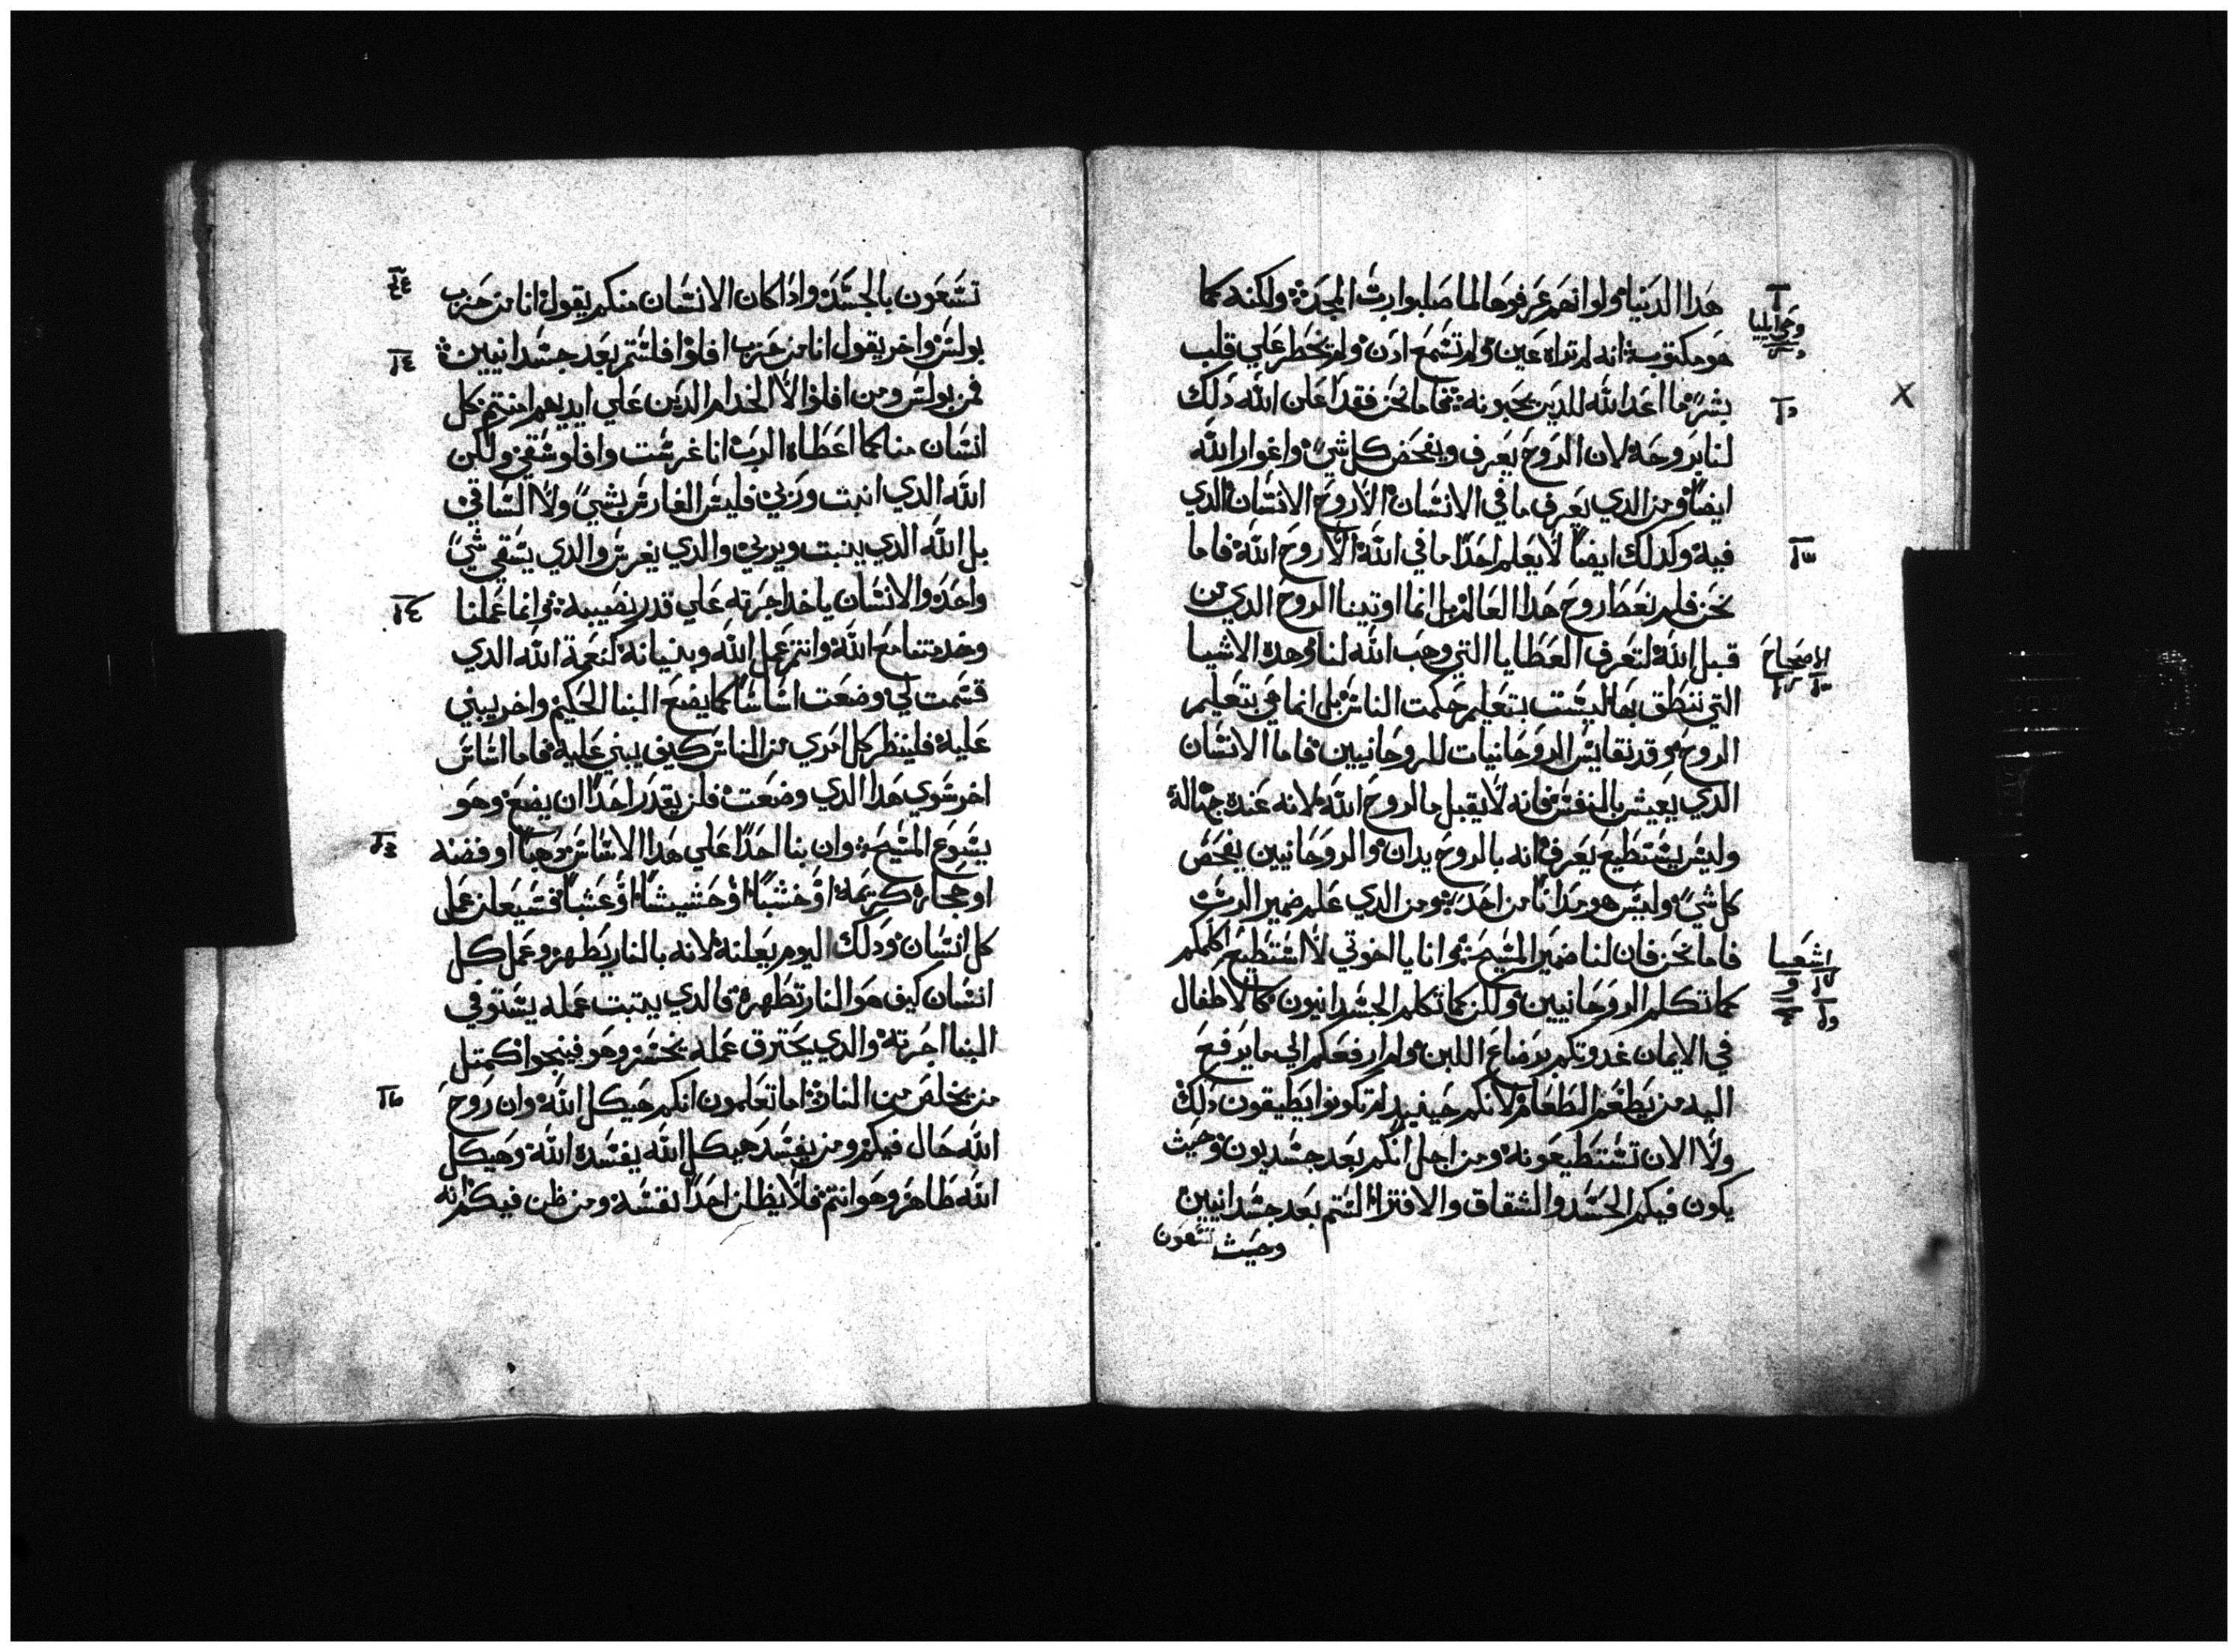 هدا الدنيا ولو انهم عرفوها لما صلبوا رب المجد ولكنه كما
هو مكتوب انه لم تراه عين ولم تسمع ادن ولم يخطر علي قلب
بشر ما اعد الله للدين يحبونه فاما نحن فقد اعلن الله دلك
لنا بروحه لان الروح يعرف ويفحص كل شي واغوار الله
ايضا ومن الدي يعرف ما في الانسان الا روح الانسان الدي
فيه وكدلك ايضا لا يعلم احدا ما في الله الا روح الله فاما
نحن فلم نعطا روح هدا العالم بل انما اوتينا الروح الدي من
قبل الله لنعرف العطايا التي وهب الله لنا وهده الاشيا
التي ننطق بها ليست بتعليم حكمت الناس بل انما هي بتعليم
الروح وقد نقايس الروحانيات للروحانيين فاما الانسان
الدي يعيش بالنفس فانه لا يقبل ما لروح الله لانه عنده جهالة
وليس يستطيع يعرف انه بالروح يدان والروحانيين يفحص
كل شي وليس هو مدانا من احد ومن الدي علم ضمير الرب
فاما نحن فان لنا ضمير المسيح وانا يا اخوتي لا استطيع اكلمكم
كما تكلم الروحانيين ولكن كما تكلم الجسدانيون كالاطفال
في الايمان غدوتكم برضاع اللبن ولم ارفعكم الي ما يرفع
اليه من يطعم الطعام لانكم حينيد لم تكونوا يطيقون دلك
ولا الان تستطيعونه ومن اجل انكم بعد جسديون وحيث
يكون فيكم الحسد والشقاق والافترا الستم بعد جسدانيين
وحيث تسعون
وحي ايليا
الاصحاح
اشعيا
تسعون بالجسد وادا كان الانسان منكم يقول انا من حزب
بولس واخر يقول انا من حزب افلوا فلستم بعد جسدانيين
فمن بولس ومن افلوا الا الخدام الدين علي ايديهم امنتم كل
انسان منا كما اعطاه الرب انا غرست وافلو سقي ولكن
الله الدي انبت وربي فليس الغارس بشي ولا الساقي
بل الله الدي ينبت ويربي والدي يغرس والدي يسقي شي
واحد والانسان ياخد اجرته علي قدر نصيبه وانما عملنا
وخدمتنا مع الله وانتم عمل الله وبنيانه كنعمة الله الدي
قسمت لي وضعت اساسا كما يضع البنا الحكيم واخر يبني
عليه فلينظر كل امري من الناس كيف يبني عليه فاما اساس
اخر سوي هدا الدي وضعت فلن يقدر احدا ان يضع وهو
يسوع المسيح وان بنا احدا علي هدا الاساس دهبا او فضه
او حجاره كريمه او خشبا او حشيشا او عشبا فسيعلن عمل
كل انسان ودلك اليوم يعلنه لانه بالنار يطهر وعمل كل
انسان كيف هو النار تطهره فالدي يتبت عمله يستوفي
البنا اجرته والدي يحترق عمله يخسر وهو فينجوا كمتل
من يخلص من النار اما تعلمون انكم هيكل الله وان روح
الله حال فيكم ومن يفسد هيكل الله يفسده الله وهيكل
الله طاهر وهو انتم فلا يظلن احدا نفسه ومن ظن فيكم انه